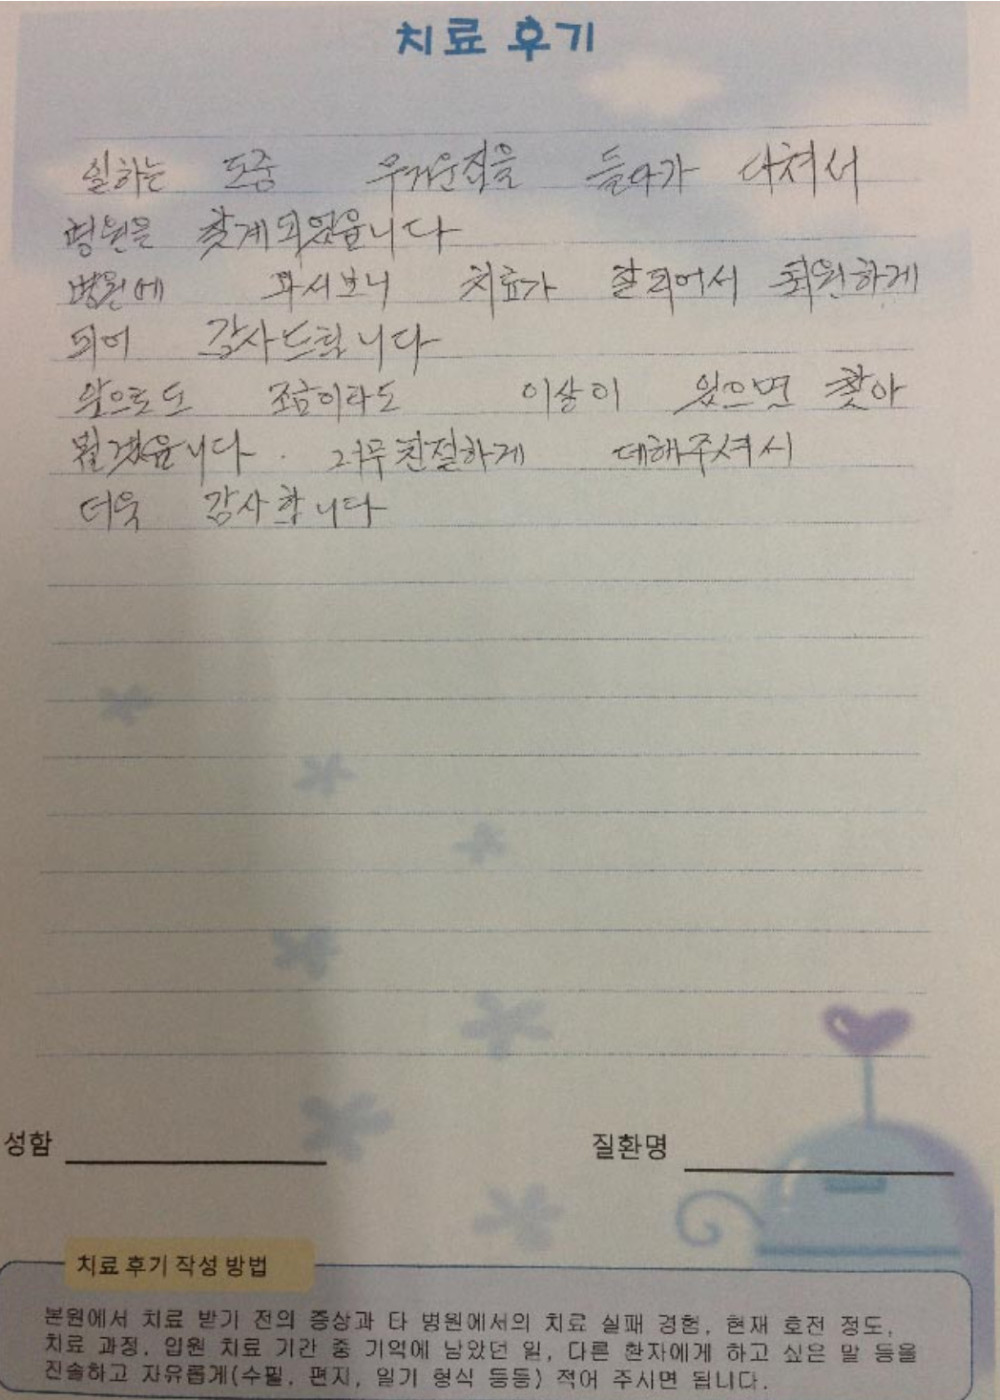 치료 후기
일하는 도중 무거운짐을 들다가 다쳐서
병원을 찾게되었읍니다
병원에 와서보니 치료가 잘되어서 퇴원하게
되어 감사드립니다
앞으로도 조금이라도 이상이 있으면 찾아
뵐겠읍니다. 너무친절하게 대해주셔서
더욱 감사합니다
성함
질환명
치료 후기 작성 방법
본원에서 치료 받기 전의 증상과 타 병원에서의 치료 실패 경험, 현재 호전 정도,
치료 과정, 입원 치료 기간 중 기억에 남았던 일, 다른 환자에게 하고 싶은 말 등을
진솔하고 자유롭게(수필, 편지, 일기 형식 등등) 적어 주시면 됩니다.